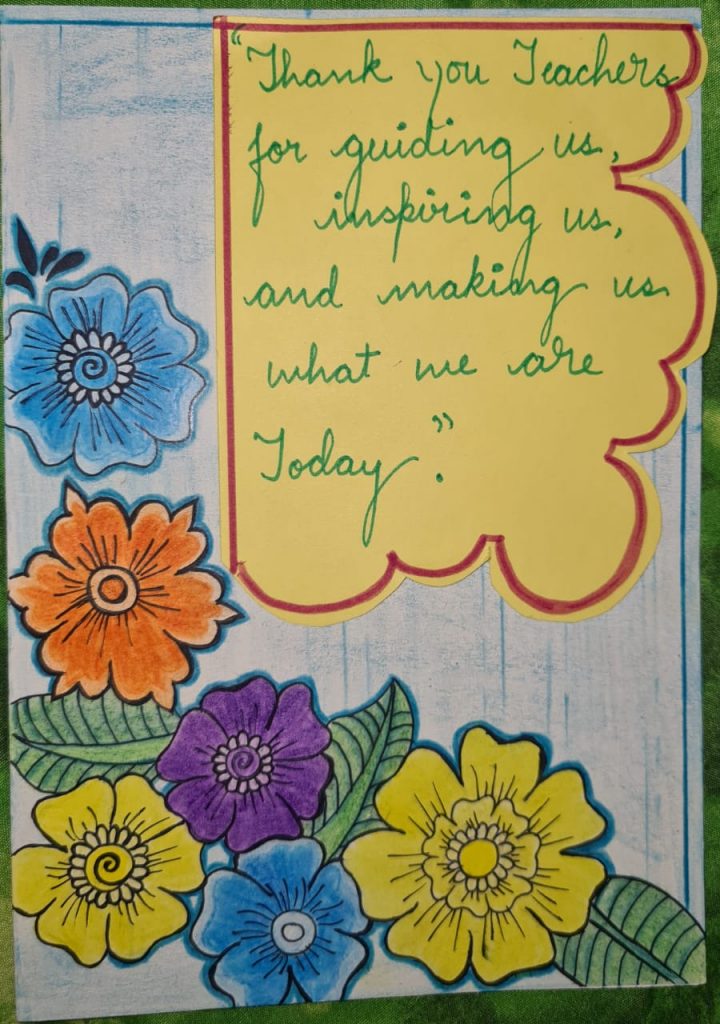 "Thank you Teachers
for guiding us,
inspiring us,
and making us
what we are
Today".